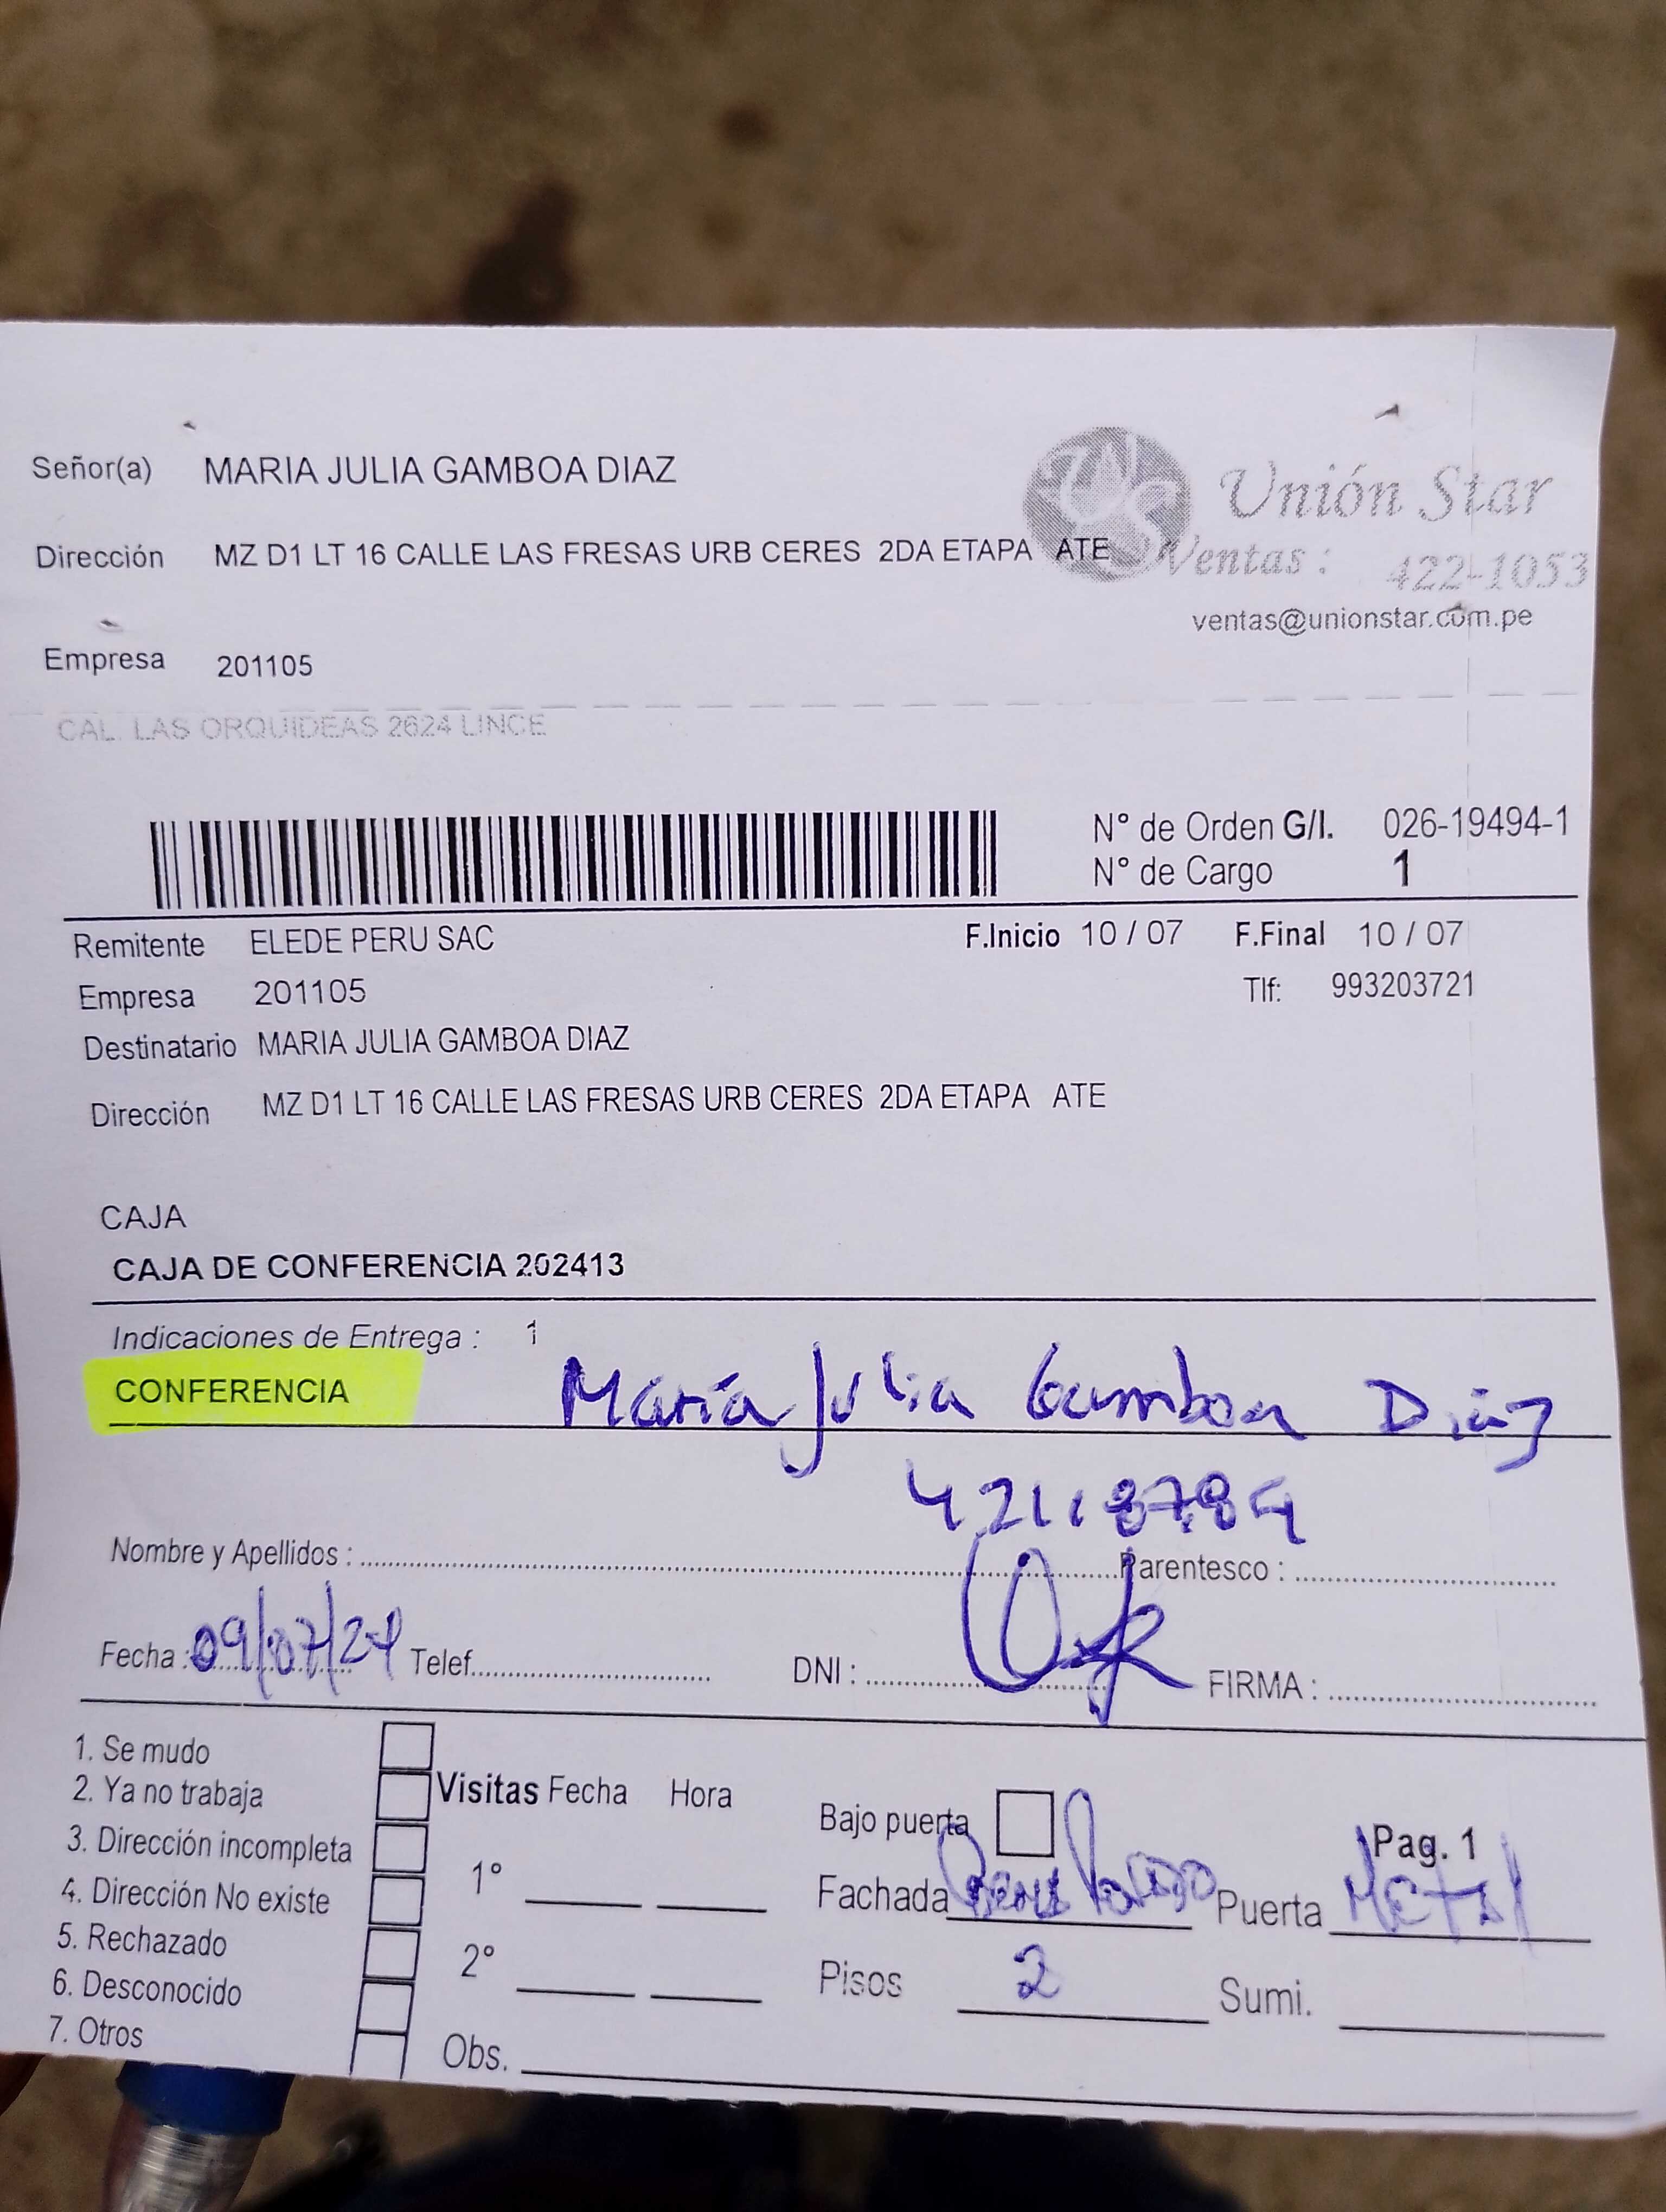 Señor(a) MARIA JULIA GAMBOA DIAZ
Unión Star
Dirección MZ D1 LT 16 CALLE LAS FRESAS URB CERES 2DA ETAPA ATE
Ventas : 422-1053
ventas@unionstar.com.pe
Empresa 201105
CAL. LAS ORQUIDEAS 2624 LINCE
N° de Orden G/I. 026-19494-1
N° de Cargo 1
Remitente ELEDE PERU SAC F.Inicio 10 / 07 F.Final 10 / 07
Empresa 201105 Tlf: 993203721
Destinatario MARIA JULIA GAMBOA DIAZ
Dirección MZ D1 LT 16 CALLE LAS FRESAS URB CERES 2DA ETAPA ATE
CAJA
CAJA DE CONFERENCIA 202413
Indicaciones de Entrega : 1
CONFERENCIA María Julia Gamboa Diaz
Nombre y Apellidos : Parentesco :
Fecha : 09/07/24 Telef. DNI : FIRMA :
1. Se mudo
2. Ya no trabaja
3. Dirección incompleta
4. Dirección No existe
5. Rechazado
6. Desconocido
7. Otros
Visitas Fecha Hora
1°
2°
Obs.
Bajo puerta Pag. 1
Fachada Puerta Metal
Pisos 2 Sumi.